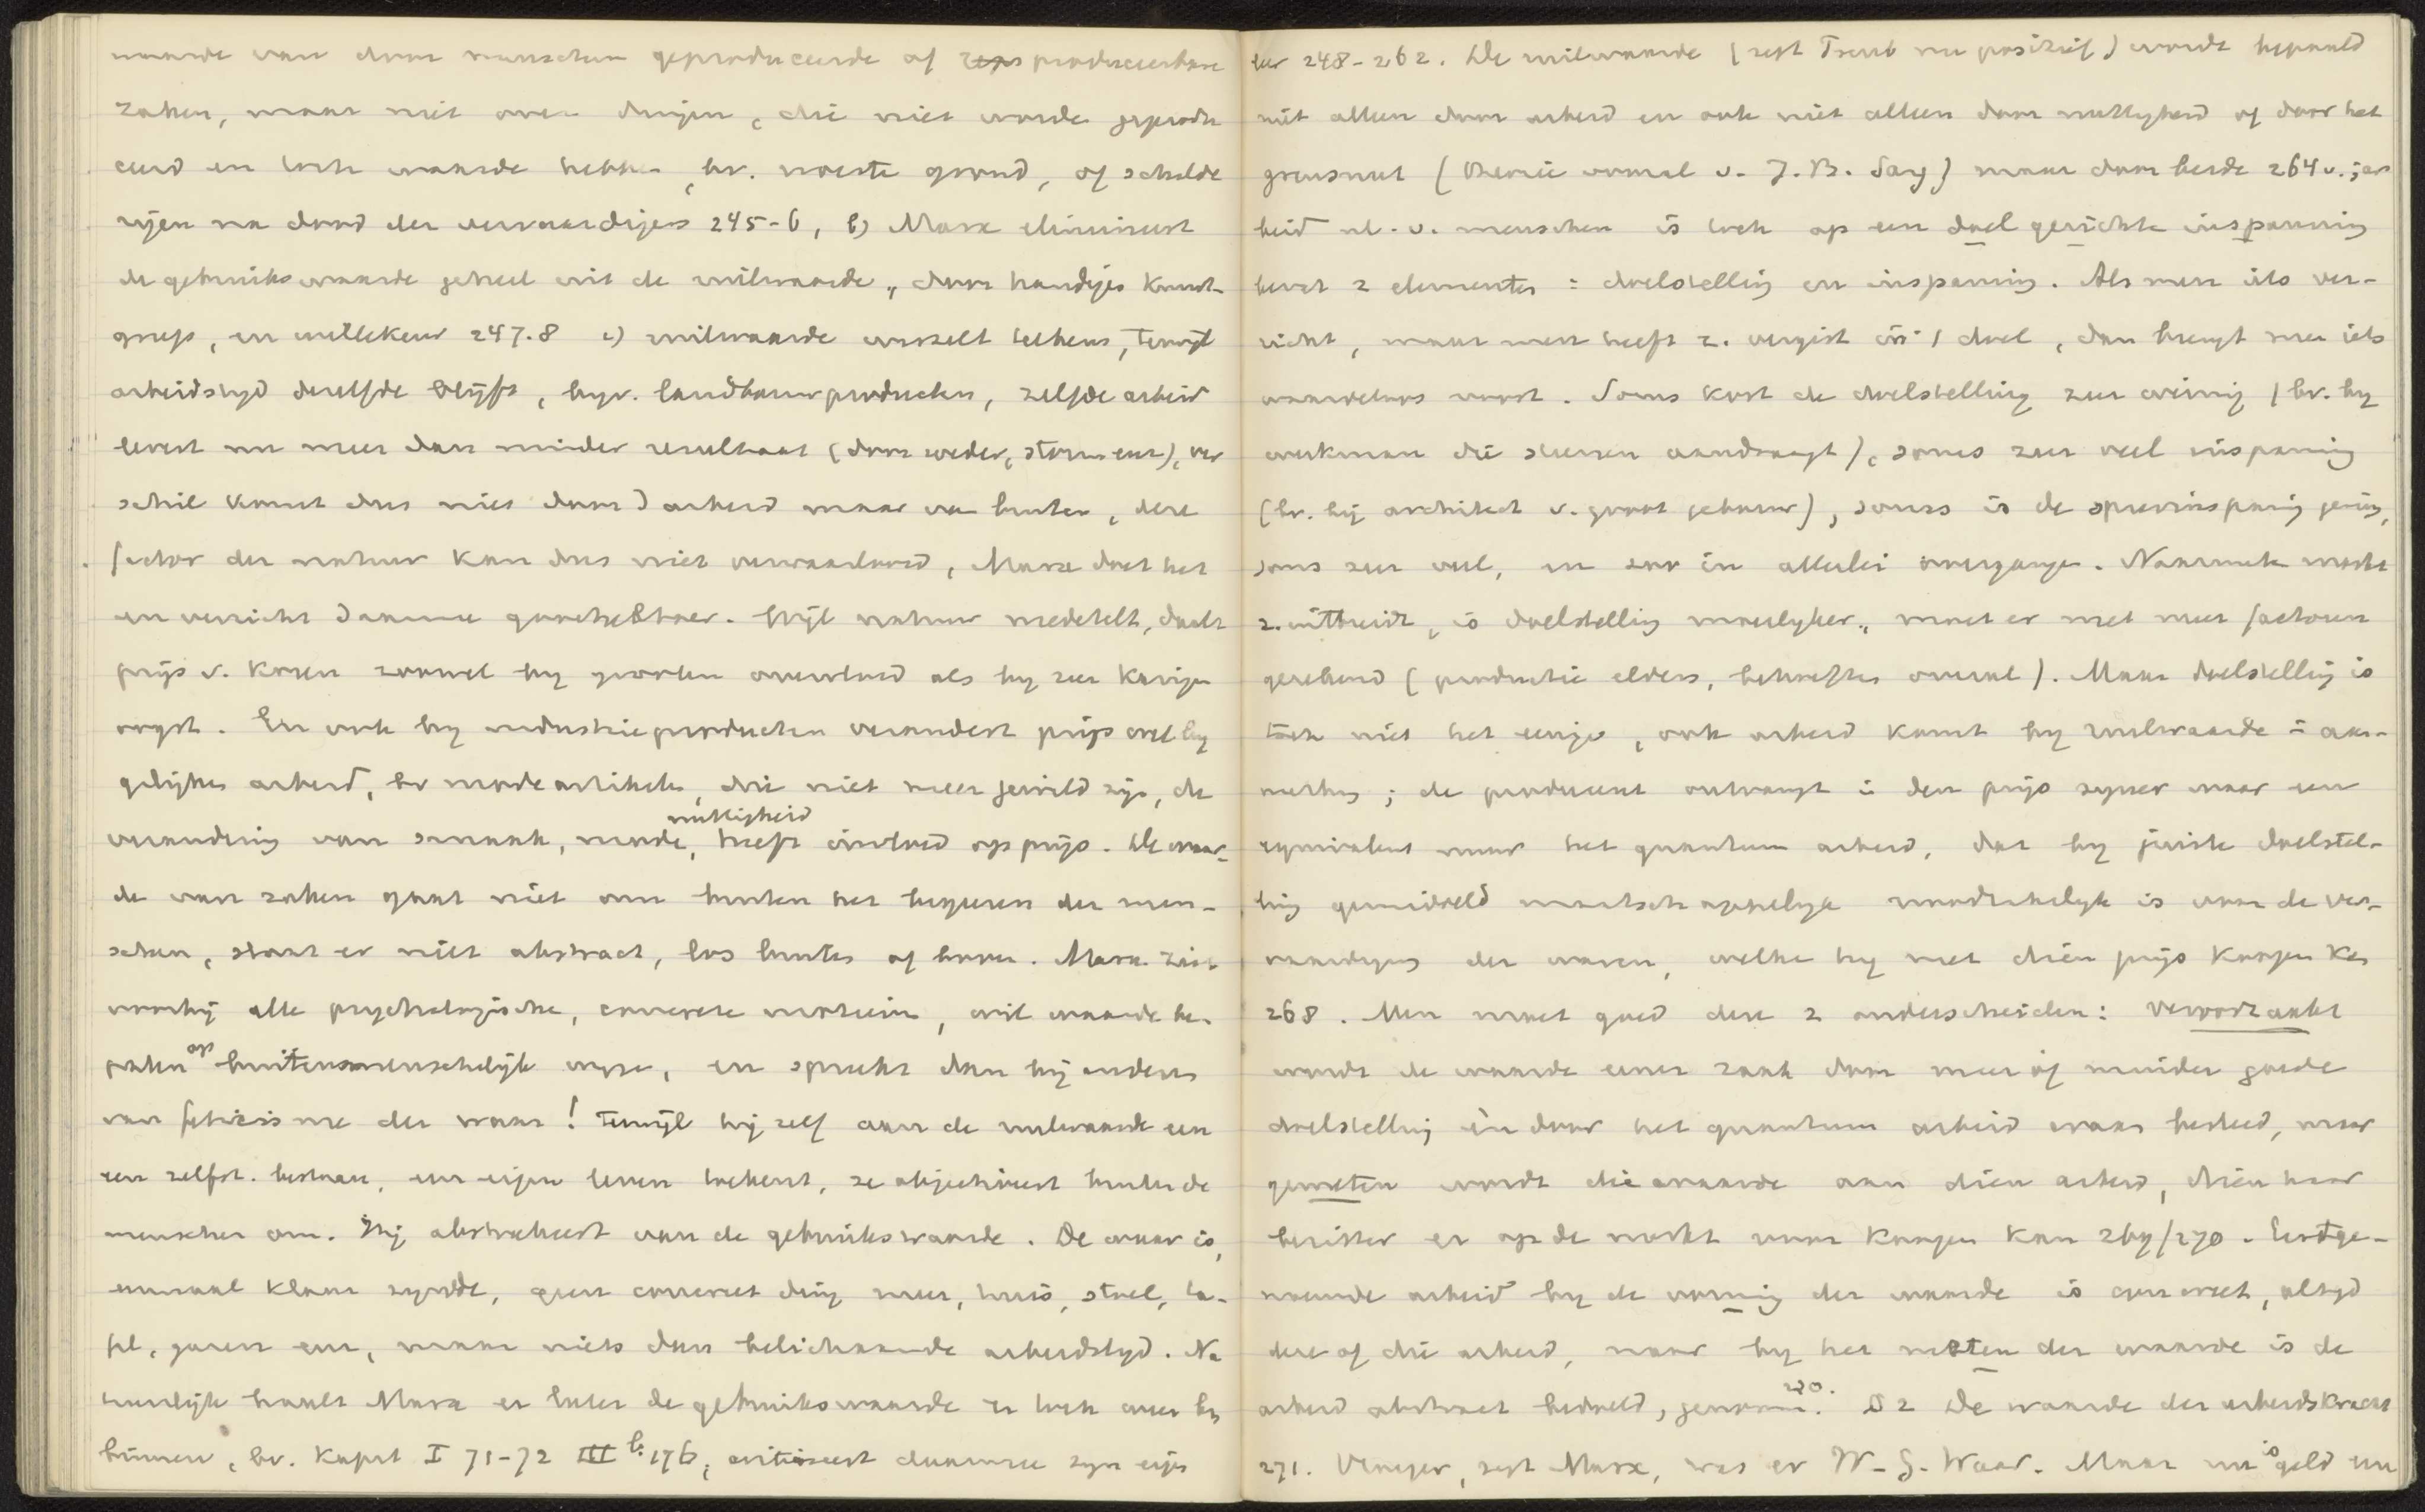 waarde van door menschen geproduceerde of reproduceerbare
zaken, maar niet over dingen, die niet worde geprodu
ceerd en toch waarde hebben, bv. woeste grond, of schilde
rijen na dood der vervaardigers 245-6, b) Marx elimineert
de gebruikswaarde geheel uit de ruilwaarde, door handijes kunst-
greep, en willekeur 247.8 c) ruilwaarde wisselt telkens, terwijl
arbeidstyd dezelfde blijft, byv. landbouwproducten, zelfde arbeid
levert nu meer dan minder resultaat (door weder, storm enz), ver
schil komt dus niet door d arbeid maar van buiten, deze
factor der natuur kan dus niet verwaarloosd, Marx doet het
en verricht daarmee goocheltoer. Wijl natuur medetelt, daalt
prijs v. koren zoowel by grooten overvloed als by zeer karige
oogst. En ook by industrieproducten verandert prijs ook by
gelijken arbeid, bv modeartikelen, die niet meer gewild zijn, de
verandering van smaak, mode, nuttigheid heeft invloed op prijs. De waar-
de van zaken gaat niet om buiten het begeren der men-
schen, staat er niet abstract, los buiten of boven. Marx ziet
voorbij alle psychologische, concrete motieven, wil waarde be-
palen op buitenmenschelijke wyze, en spreekt dan bij anderen
van fetisisme der waar! terwijl hij zelf aan de ruilwaarde een
een zelfst. bestaan, een eigen leven toekent, ze objectiveert buiten de
menschen om. Hij abstraheert van de gebruikswaarde. De waar is,
eenmaal klaar zynde, geen concreet ding meer, huis, stoel, ta-
fel, garen enz, maar niets dan belichaamde arbeidstyd. Na
tuurlijk haalt Marx er later de gebruikswaarde er toch weer by
binnen, bv. Kapit I 71-72 III b: 176, critiseert daarmee zyn eigen
leer 248-262. De ruilwaarde (zegt Treub nu positief) wordt bepaald
niet alleen door arbeid en ook niet alleen door nuttigheid of door het
grensnut (theorie vooral v. J. B. Say) maar door beide 264 v.; ar
beid nl. v. menschen is toch op een doel gerichte inspanning
bevat 2 elementen: doelstelling en inspanning. Als men iets ver-
richt, maar men heeft z. vergist in 't doel, dan brengt men iets
waardeloos voort. Soms kost de doelstelling zeer weinig (bv. by
werkman die steenen aandraagt), soms zeer veel inspanning
(bv. bij architect v. groot gebouw), soms is de spierinspaning gering,
soms zeer veel, en zoo in allerlei overgangen. Naarmate markt
z. uitbreidt, is doelstelling moeilyker, moet er met meer factoren
gerekend (productie elders, behoeften overal). Maar doelstelling is
toch niet het eenige, ook arbeid komt by ruilwaarde in aan-
merking; de producent ontvangt in den prijs zyner waar een
equivalent voor het quantum arbeid, dat by juiste doelstel-
ling gemiddeld maatschappelijk noodzakelyk is voor de ver-
vaardiging der waren, welke hy met dien prijs koopen kan
268. Men moet goed deze 2 onderscheiden: veroorzaakt
wordt de waarde eener zaak door meer of minder goede
doelstelling èn door het quantum arbeid eraan besteed, maar
gemeten wordt die waarde aan dien arbeid, dien haar
bezitter er op de markt voor koopen kan 269/270. Eerstge-
noemde arbeid by de vorming der waarde is concreet, altyd
deze of die arbeid, maar by het meten der waarde is de
arbeid abstract bedoeld, genomen. 270. § 2 De waarde der arbeidskracht
271. Vroeger, zegt Marx, was er W-G-Waar. Maar nu is geld een